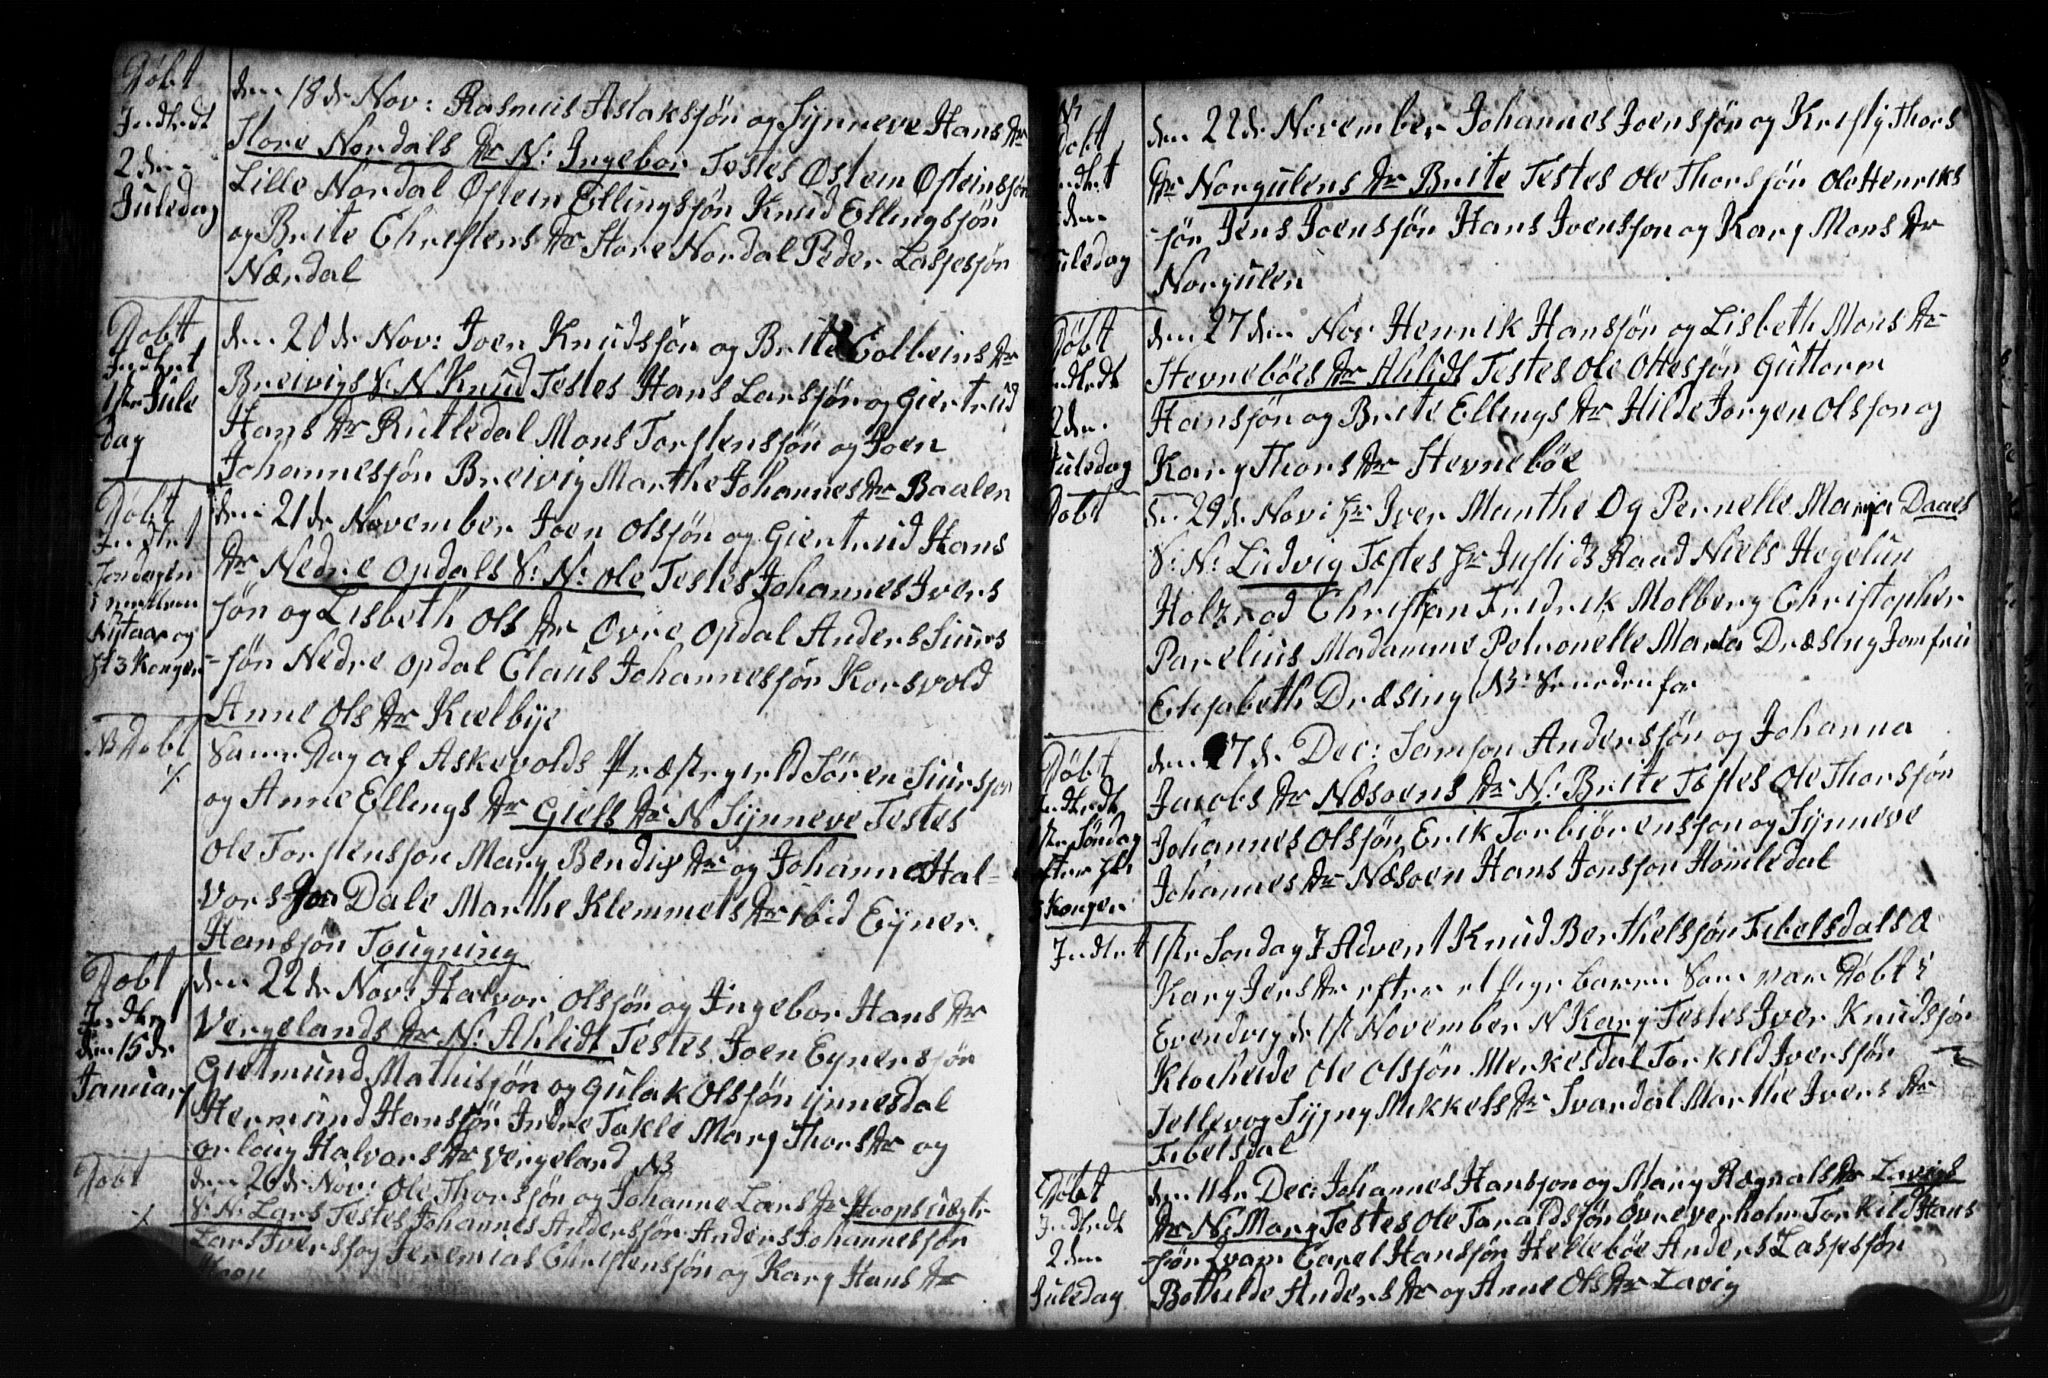 Døbt
Indledt
2den
Juledag
den 18de Nov: Rasmus Aslaksjøn og Synneve Hans Dr
Store Nordals Dr N: Ingebor Testes Østein Østeinsjøn
Lille Nordal Østein Ellingsjøn Knud Ellingsjøn
og Brite Christens Dr Store Nordal Peder Lassesjøn
Nærdal
Døbt
Indledt
1ste Jule
dag
den 20de Nov: Joen Knudsjøn og Brite Colbeins Dr
Breivigs S: N Knud Testes Hans Larsjøn og Giertrud
Hans Dr Rutledal Mons Torstensjøn og Joen
Johannesjøn Breivig Marthe Johannes Dr Baalen
Døbt
Indledt
Søndagen
imellem
Nytaar og
H 3 Konger
den 21de November Joen Olsjøn og Giertrud Hans
Dr Nedre Opdals S: N: Ole Testes Johannes Ivers
sjøn og Lisbeth Ols Dr Ovre Opdal Anders Siurs
=sjøn Nedre Opdal Claus Johannessjøn Korsvold
Anne Ols Dr Kælbye
NB Døbt
Same Dag af Askevolds Præstegield Søren Siursjøn
og Anne Ellings Dr Giels Dr N Synneve Testes
Ole Torstensjon Mary Bendix Dr og Johanne Hal=
vors Dale Marthe Klemmets Dr ibid Eyner
Hansjøn Tougning
Døbt
Indledt
den 15de
Januarij
den 22de Nov: Halvor Olsjøn og Ingebor Hans Dr
Vergelands Dr N: Ahlidt Testes Joen Eynersjøn
Gietmund Mathisjøn og Gulak Olsjøn ynnesdal
Hermund Hansjør Indre Takle Mary Thors Dr og
orlaug Halvors Dr Vergeland NB
Døbt
den 26de Nov: Ole Thorsjøn og Johanne Lars Dr
S: N: Lars Testes Johannes Andersjør Anders Johannesjøn
Lars Iversjøn Jeremias Christensjøn og Kary Hans Dr
Hoop
NB
Døbt
Indledt
2den
Juledag
den 22de November Johannes Joensjøn og Kristy Thors
Dr Norgulens Dr Brite Testes Ole Thorsjør Ole Henriks
sjør Jens Joensjør Hans Ivensjon og Kary Mons Dr
Norgulen
Døbt
Indledt
2den
Juledag
den 27den Nov Henrik Hansjøn og Lisbeth Mons Dr
Stevnebøes Dr Ahlidt Testes Ole Ottesjør Guttorm
Hansjøn og Brite Ellings Dr Hilde Jorgen Olsjon og
Kary Thors Dr Stevnebøe
Døbt
den 29de Nov: Hr Iver Munthe Og Pernelle Maria Daaes
S: N: Ludvig Testes Hr Justidz Raad Niels Hegelun
Holz og Christian Fridrik Molberg Christopher
Parelius Madamme Petronelle Maria Dræsing Jomfru
Elisabeth Dræsing NB: See nedenfor
Døbt
Indledt
1ste Søndag
efter H
3 Konger
den 7de Dec: Samson Andersjøn og Johanna
Jacobs Dr Næsoens Dr N: Brite Testes Ole Thorsjøn
Johannes Olsjør Erik Torbiørensjon og Synneve
Johannes Dr Næsoen Hans Jonsjon Homledal
Indledt
1ste Sondag I Advent Knud Berthelsjøn Fibelsdals
Kary Jens Dr efter et Pige barn Som var Døbt i
Evendvig de 1ste November N Kary Testes Iver Knudsjøn
Klocheide Ole Olsjøn Merkesdal Torkild Iversjør
Tellev og Sygny Mikkels Dr Svardal Marthe Ivers Dr
Fibelsdal
Døbt
Indledt
2den
Juledag
den 11te Dec: Johannes Hansjon og Mary Rægnals Dr Lavigs
Dr N: Mary Testes Ole Taraldsjør øvre verholm Torkild Hans
sjør Qvam Carel Hansjør Hellebøe Anders Lassesjøn
Bothilde Anders Dr og Anne Ols Dr Lavig